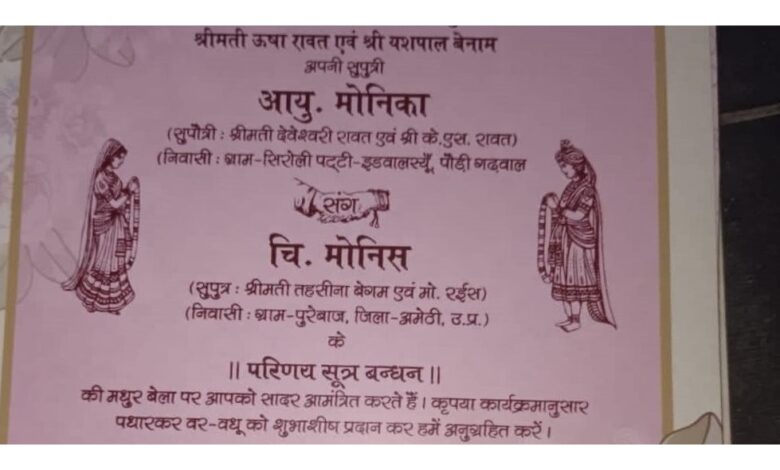 श्रीमती ऊषा रावत एवं श्री यशपाल बेनाम
अपनी सुपुत्री
आयु. मोनिका
(सुपौत्री : श्रीमती देवेश्वरी रावत एवं श्री के.एस. रावत)
(निवासी : ग्राम-सिरोली पट्टी-इडवालस्यूँ, पौड़ी गढ़वाल
संग
चि. मोनिस
(सुपुत्र : श्रीमती तहसीना बेगम एवं मो. रईस)
(निवासी : ग्राम-पुरेबाज, जिला-अमेठी, उ.प्र.)
के
॥ परिणय सूत्र बन्धन ॥
की मधुर बेला पर आपको सादर आमंत्रित करते हैं। कृपया कार्यक्रमानुसार
पधारकर वर-वधू को शुभाशीष प्रदान कर हमें अनुग्रहित करें।